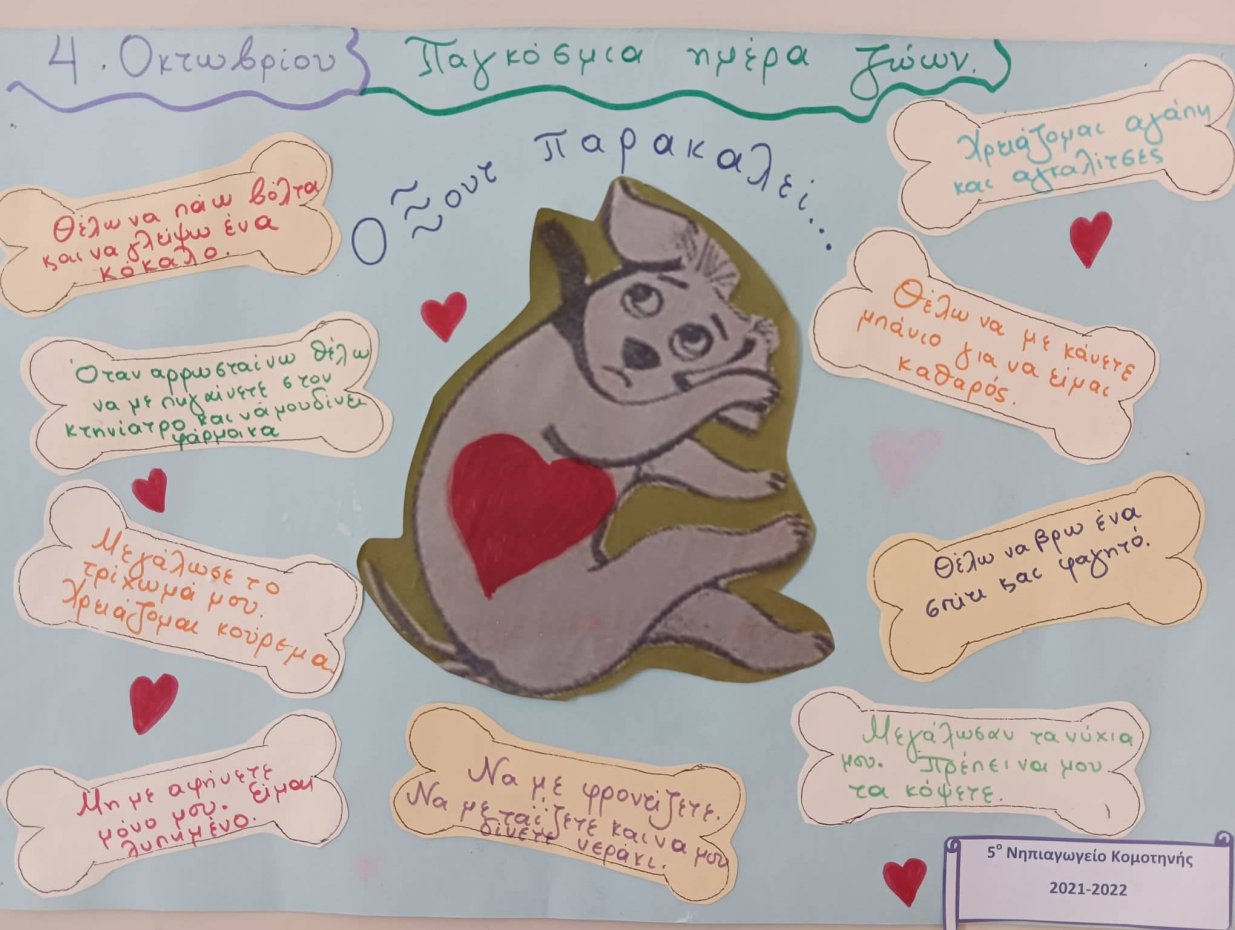 4. Οκτωβρίου Παγκόσμια ημέρα ζώων.
Ο ~~~ουτ παρακαλεί...
Θέλω να πάω βόλτα
και να γλείψω ένα
κόκαλο.
Όταν αρρωσταίνω θέλω
να με πηγαίνετε στον
κτηνίατρο και να μου δίνετε
φάρμακα
Μεγάλωσε το
τρίχωμά μου.
Χρειάζομαι κούρεμα
Μη με αφήνετε
μόνο μου. Είμαι
λυπημένο.
Να με φροντίζετε.
Να με ταΐζετε και να μου
δίνετε νεράκι.
Χρειάζομαι αγάπη
και αγκαλίτσες
Θέλω να με κάνετε
μπάνιο για να είμαι
καθαρός.
Θέλω να βρω ένα
σπίτι και φαγητό.
Μεγάλωσαν τα νύχια
μου. Πρέπει να μου
τα κόψετε.
5º Νηπιαγωγείο Κομοτηνής
2021-2022